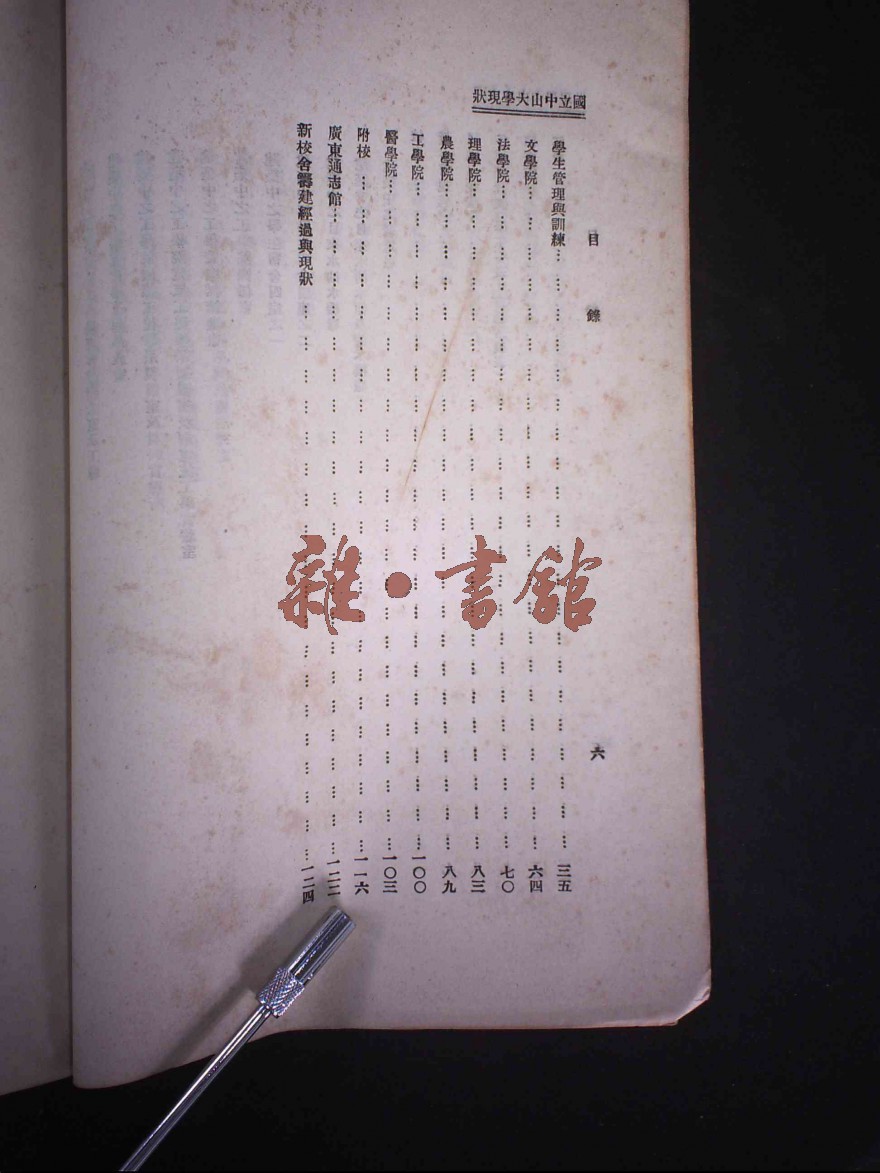 國立中山大學現狀
目 錄
六
學生管理與訓練…………三五
文學院…………六四
法學院…………七〇
理學院…………八三
農學院…………八九
工學院…………一〇〇
醫學院…………一〇三
附校…………一一六
廣東通志館…………一二二
新校舍籌建經過與現狀…………一二四
雜·書館